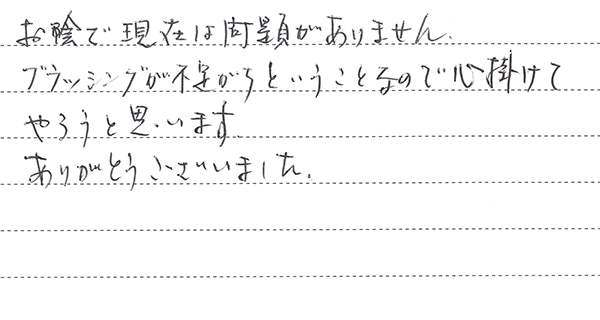 お陰で現在は問題がありません.
ブラッシングが不足がちということなので心掛けて
やろうと思います.
ありがとうございいました.